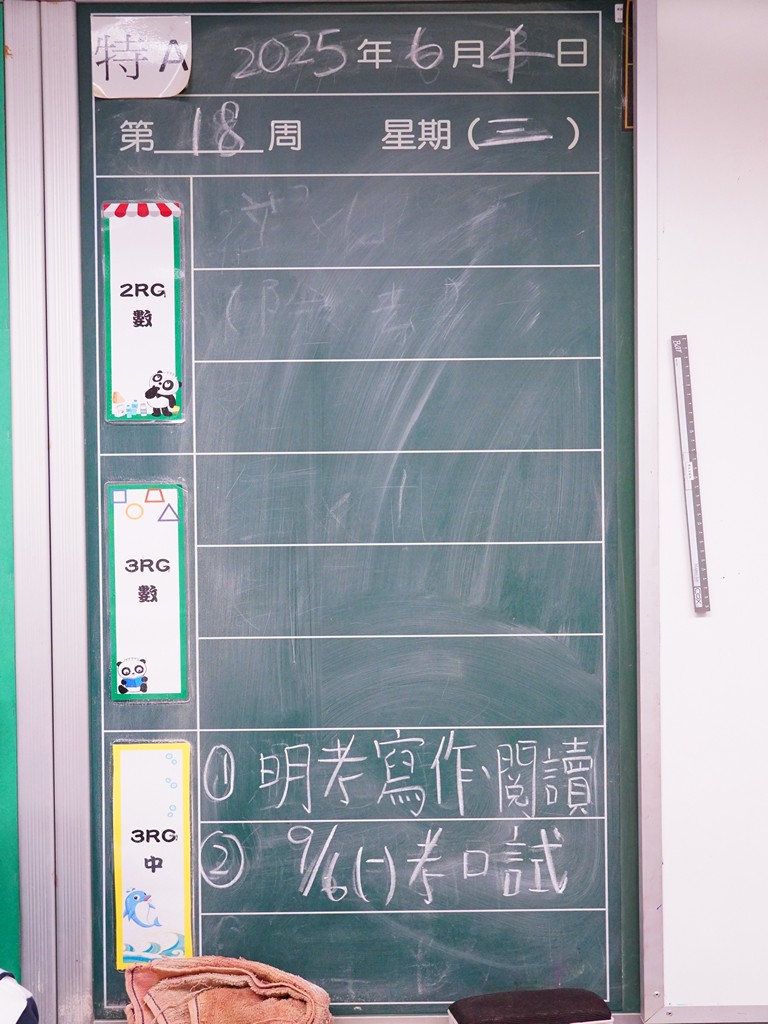 特 A
2025年6月4日
第18周 星期(三)
2RG
數
3RG
數
3RG
中
① 明考寫作、閱讀
② 9/6(一)考口試